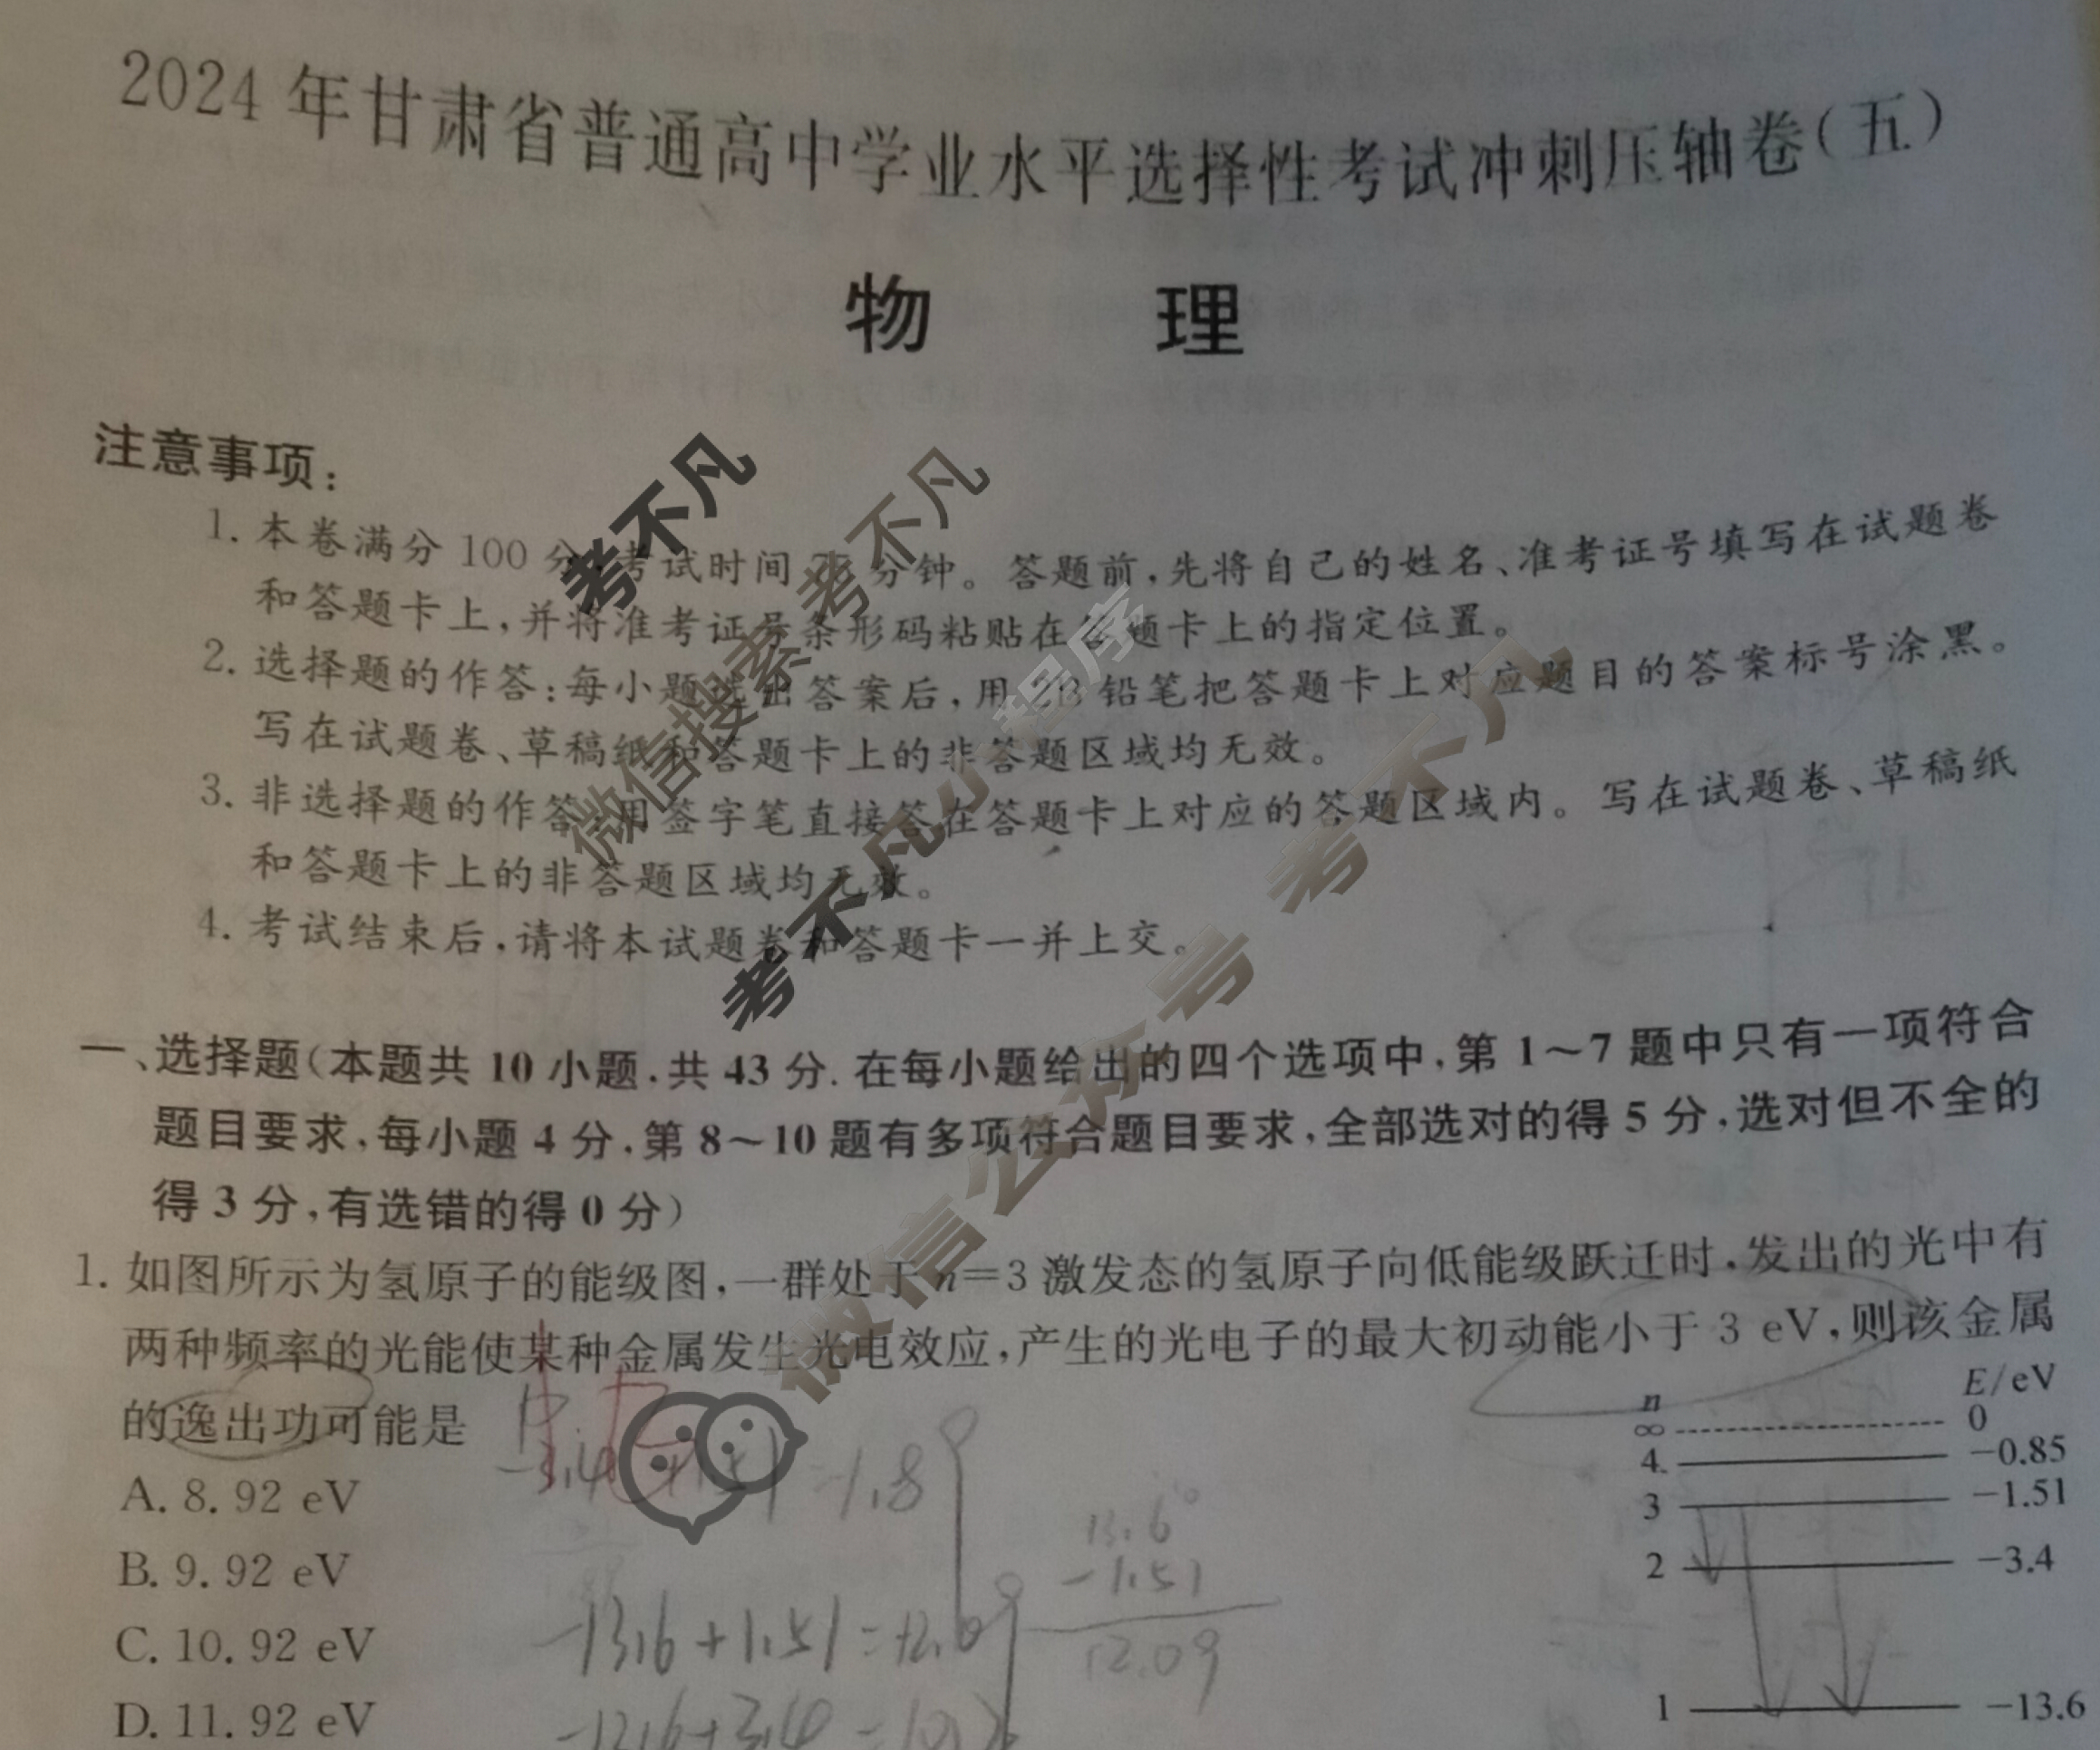 2024年甘肃省普通高中学业水平选择性考试冲刺压轴卷(五)
物 理
注意事项:
1. 本卷满分100分,考试时间 分钟。答题前,先将自己的姓名、准考证号填写在试题卷
和答题卡上,并将准考证号条形码粘贴在答题卡上的指定位置。
2. 选择题的作答:每小题选出答案后,用2B铅笔把答题卡上对应题目的答案标号涂黑。
写在试题卷、草稿纸和答题卡上的非答题区域均无效。
3. 非选择题的作答:用签字笔直接答在答题卡上对应的答题区域内。写在试题卷、草稿纸
和答题卡上的非答题区域均无效。
4. 考试结束后,请将本试题卷和答题卡一并上交。
一、选择题(本题共10小题,共43分.在每小题给出的四个选项中,第1~7题中只有一项符合
题目要求,每小题4分,第8~10题有多项符合题目要求,全部选对的得5分,选对但不全的
得3分,有选错的得0分)
1. 如图所示为氢原子的能级图,一群处于n=3激发态的氢原子向低能级跃迁时,发出的光中有
两种频率的光能使某种金属发生光电效应,产生的光电子的最大初动能小于3 eV,则该金属
的逸出功可能是
A. 8.92 eV
B. 9.92 eV
C. 10.92 eV
D. 11.92 eV
n E/eV
∞ 0
4 -0.85
3 -1.51
2 -3.4
1 -13.6
13.6
-1.51
12.09
-13.6+1.51=
考不凡
微信搜索 考不凡
考不凡小程序
微信公众号 考不凡